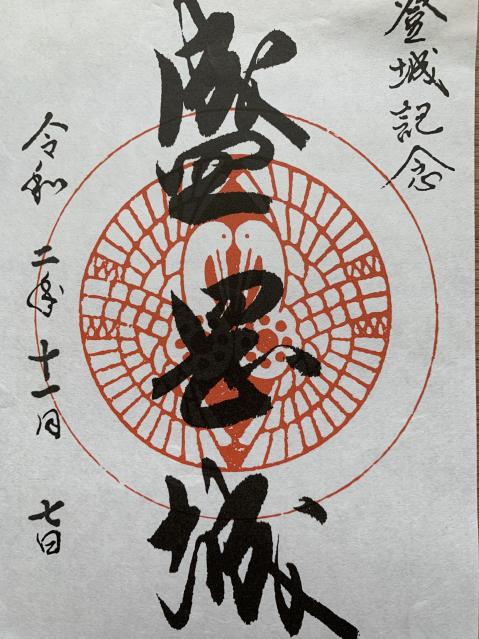 登城記念
盛岡城
令和二年十一月七日